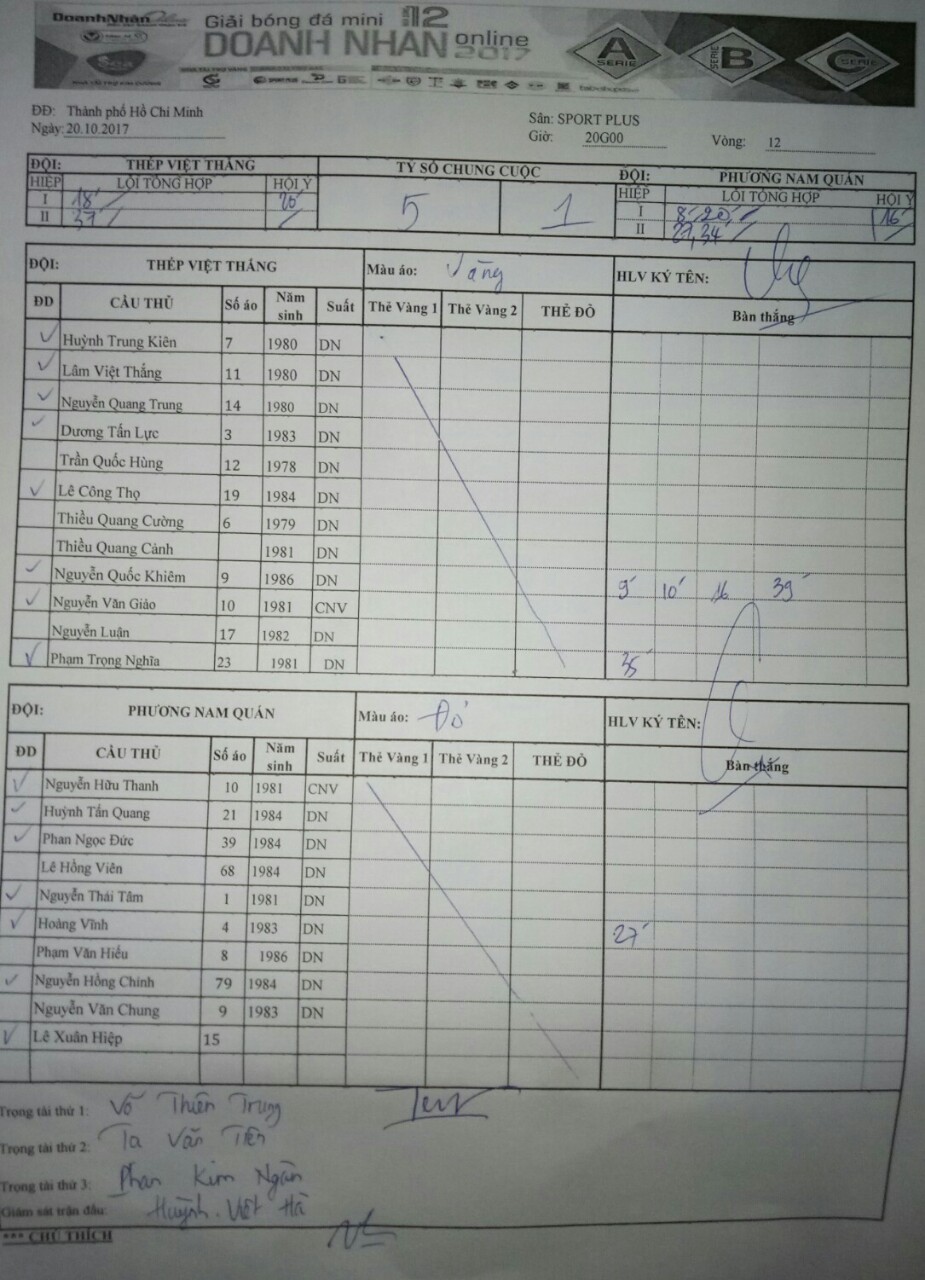 DoanhNhân Online
Giải bóng đá mini lần 12
DOANH NHÂN online 2017
A SERIE
B SERIE
C SERIE
ĐĐ: Thành phố Hồ Chí Minh
Ngày: 20.10.2017
Sân: SPORT PLUS
Giờ: 20G00
Vòng: 12
ĐỘI: THÉP VIỆT THẮNG TỶ SỐ CHUNG CUỘC ĐỘI: PHƯƠNG NAM QUÁN
HIỆP LỖI TỔNG HỢP HỘI Ý 5 1 HIỆP LỖI TỔNG HỢP HỘI Ý
I 18' I 8' 20' 16'
II 37' II 27, 34'
ĐỘI: THÉP VIỆT THẮNG Màu áo: Vàng HLV KÝ TÊN:
ĐD CẦU THỦ Số áo Năm sinh Suất Thẻ Vàng 1 Thẻ Vàng 2 THẺ ĐỎ Bàn thắng
✓ Huỳnh Trung Kiên 7 1980 DN
✓ Lâm Việt Thắng 11 1980 DN
✓ Nguyễn Quang Trung 14 1980 DN
✓ Dương Tấn Lực 3 1983 DN
Trần Quốc Hùng 12 1978 DN
✓ Lê Công Thọ 19 1984 DN
Thiều Quang Cường 6 1979 DN
Thiều Quang Cảnh 1981 DN
✓ Nguyễn Quốc Khiêm 9 1986 DN 9' 10' 16 39'
✓ Nguyễn Văn Giáo 10 1981 CNV
Nguyễn Luận 17 1982 DN
✓ Phạm Trọng Nghĩa 23 1981 DN 35'
ĐỘI: PHƯƠNG NAM QUÁN Màu áo: Đỏ HLV KÝ TÊN:
ĐD CẦU THỦ Số áo Năm sinh Suất Thẻ Vàng 1 Thẻ Vàng 2 THẺ ĐỎ Bàn thắng
✓ Nguyễn Hữu Thanh 10 1981 CNV
✓ Huỳnh Tấn Quang 21 1984 DN
✓ Phan Ngọc Đức 39 1984 DN
Lê Hồng Viên 68 1984 DN
✓ Nguyễn Thái Tâm 1 1981 DN
✓ Hoàng Vĩnh 4 1983 DN 27'
Phạm Văn Hiếu 8 1986 DN
✓ Nguyễn Hồng Chinh 79 1984 DN
Nguyễn Văn Chung 9 1983 DN
✓ Lê Xuân Hiệp 15
Trọng tài thứ 1: Võ Thiên Trung
Trọng tài thứ 2: Tạ Văn Tiên
Trọng tài thứ 3: Phan Kim Ngân
Giám sát trận đấu: Huỳnh Việt Hà
*** CHÚ THÍCH